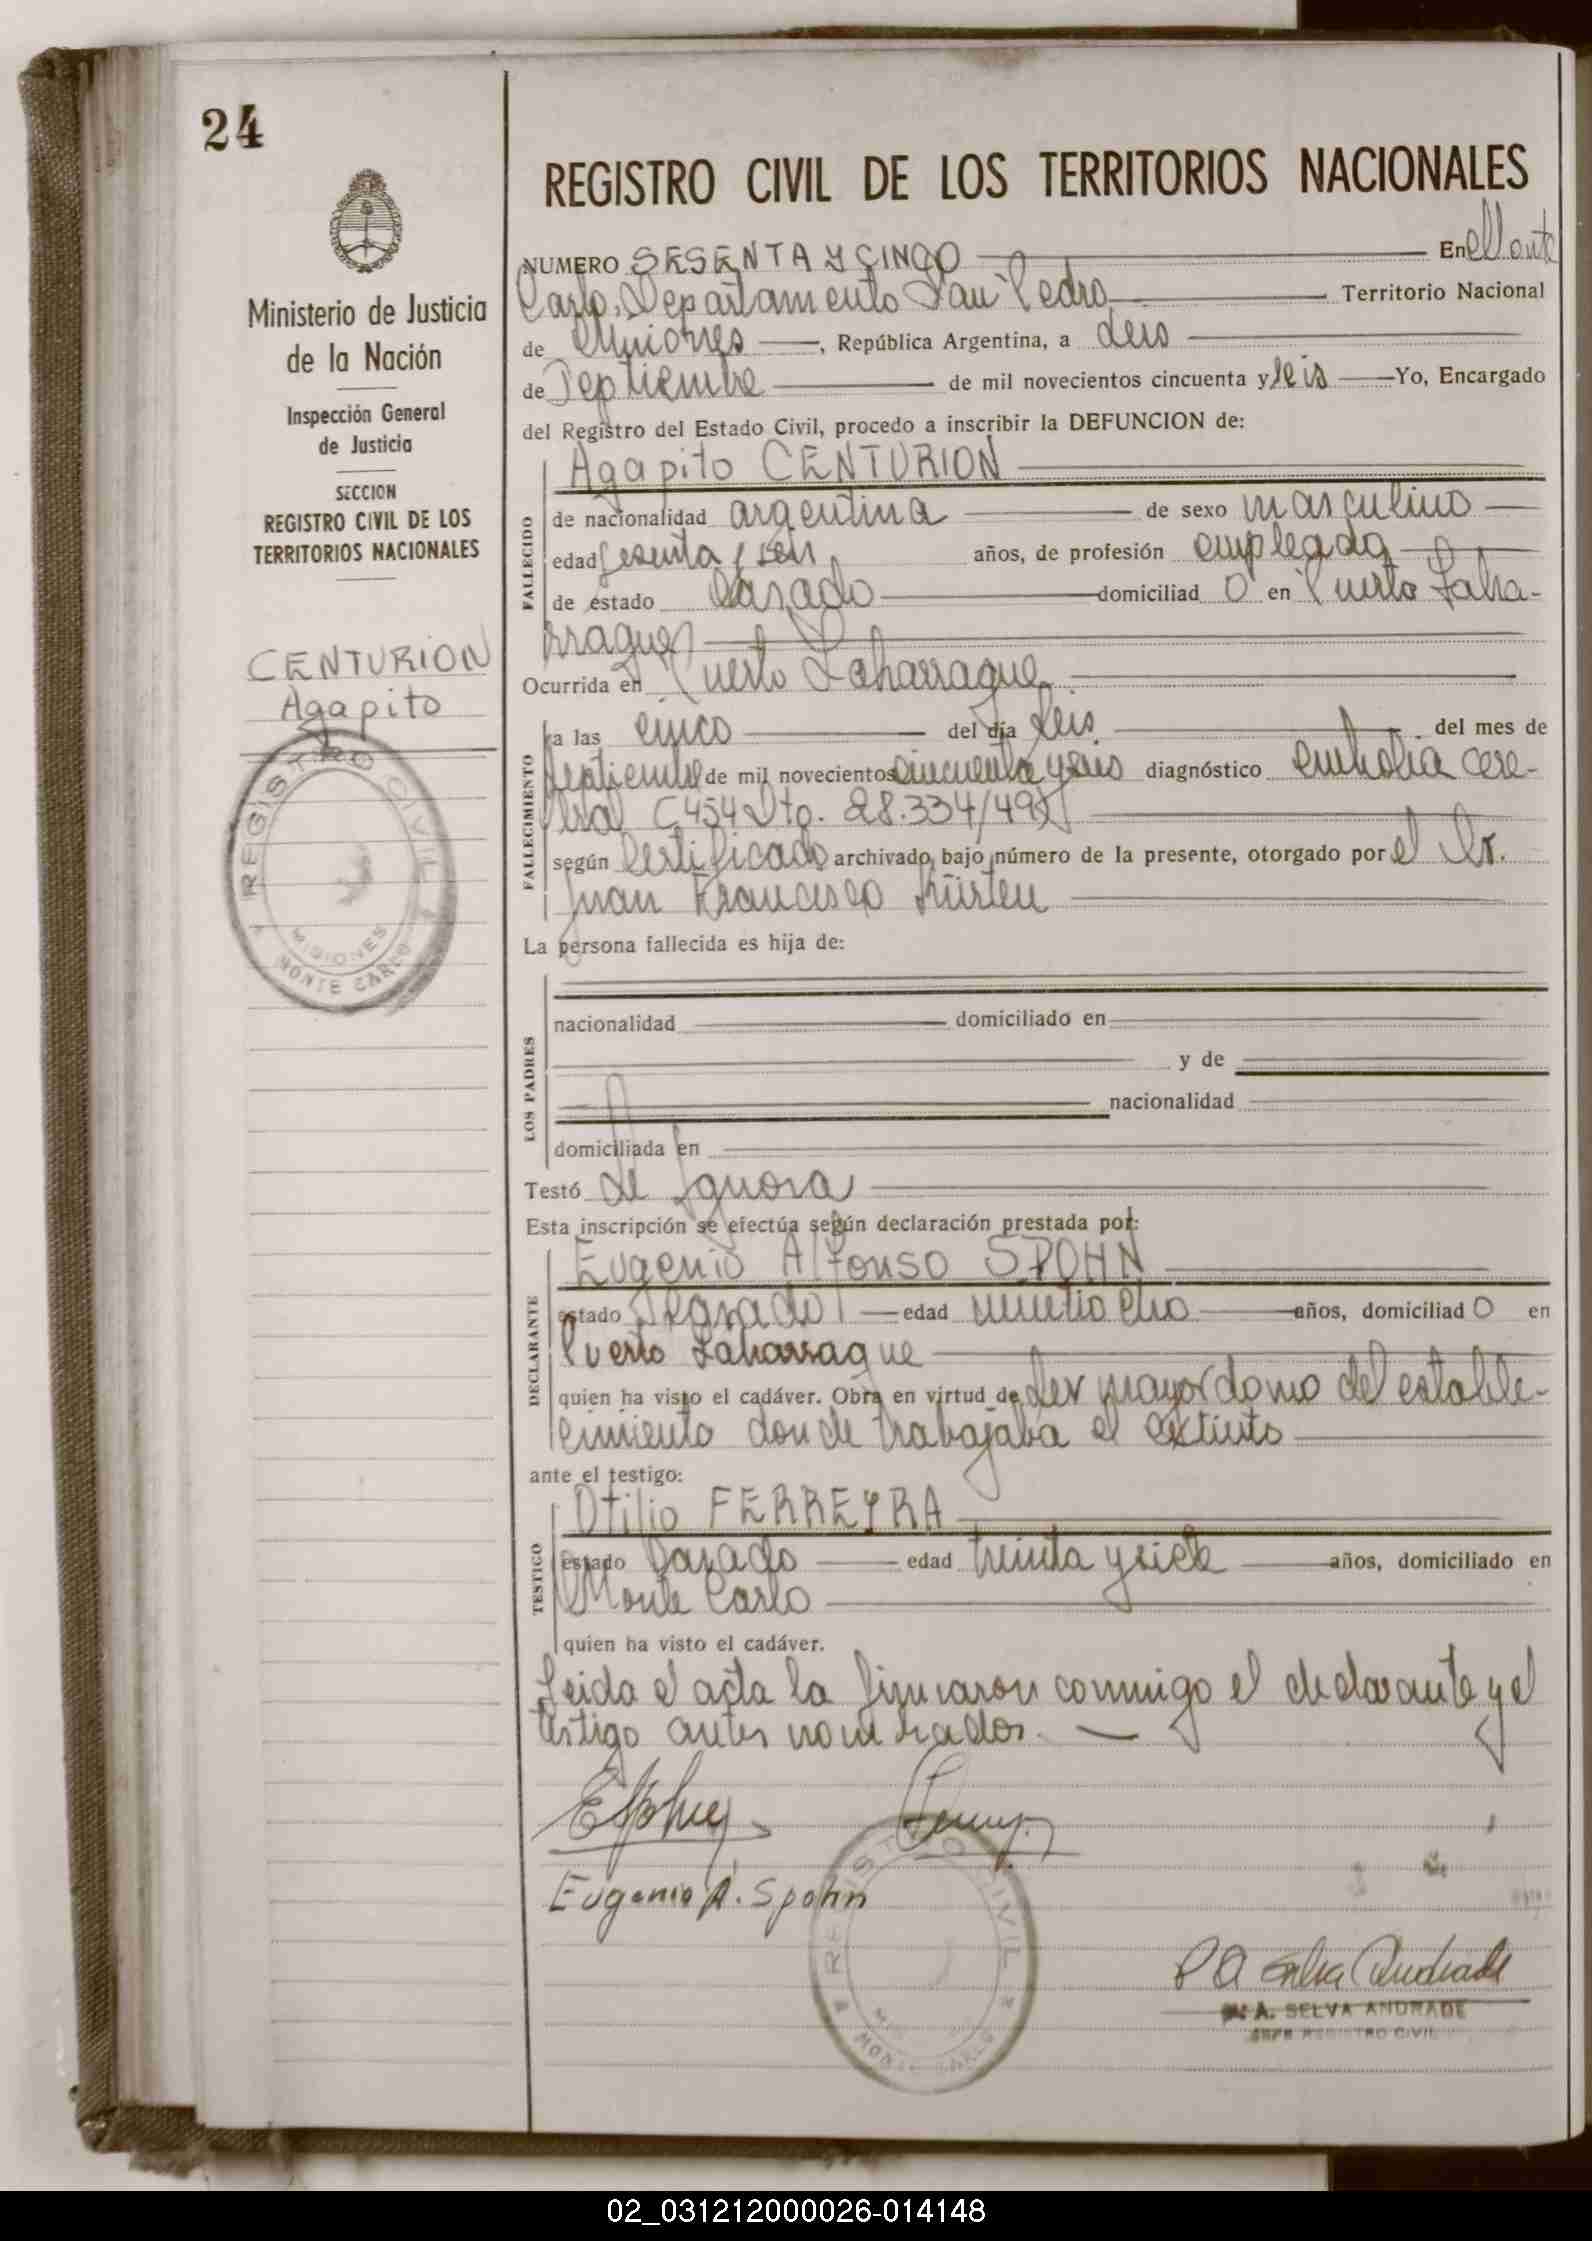 24
Ministerio de Justicia
de la Nación
Inspección General
de Justicia
SECCION
REGISTRO CIVIL DE LOS
TERRITORIOS NACIONALES
CENTURION
Agapito
REGISTRO CIVIL
MISIONES
MONTE CARLO
REGISTRO CIVIL DE LOS TERRITORIOS NACIONALES
NUMERO SESENTA Y CINCO En Monte
Carlo, Departamento San Pedro Territorio Nacional
de Misiones, República Argentina, a seis
de Septiembre de mil novecientos cincuenta y seis Yo, Encargado
del Registro del Estado Civil, procedo a inscribir la DEFUNCION de:
Agapito CENTURION
FALLECIDO
de nacionalidad argentina de sexo masculino
edad sesenta y seis años, de profesión empleado
de estado casado domiciliado en Puerto Laha-
rrague
Ocurrida en Puerto Laharrague
FALLECIMIENTO
a las cinco del día seis del mes de
septiembre de mil novecientos cincuenta y seis diagnóstico embolia cere-
bral C454 Dto. 28.334/49
según certificado archivado bajo número de la presente, otorgado por el Dr.
Juan Francisco Kürten
La persona fallecida es hija de:
LOS PADRES
nacionalidad domiciliado en
y de
nacionalidad
domiciliada en
Testó se ignora
Esta inscripción se efectúa según declaración prestada por:
Eugenio Alfonso SPOHN
DECLARANTE
estado casado edad veintiocho años, domiciliado en
Puerto Laharrague
quien ha visto el cadáver. Obra en virtud de ser mayordomo del estable-
cimiento donde trabajaba el extinto
ante el testigo:
Otilio FERREYRA
TESTIGO
estado casado edad treinta y siete años, domiciliado en
Monte Carlo
quien ha visto el cadáver.
Leida el acta la firmaron conmigo el declarante y el
testigo antes nombrados.
Eugenio A. Spohn
REGISTRO CIVIL
MONTE CARLO
Selva Andrade
A. SELVA ANDRADE
JEFE REGISTRO CIVIL
02_031212000026-014148